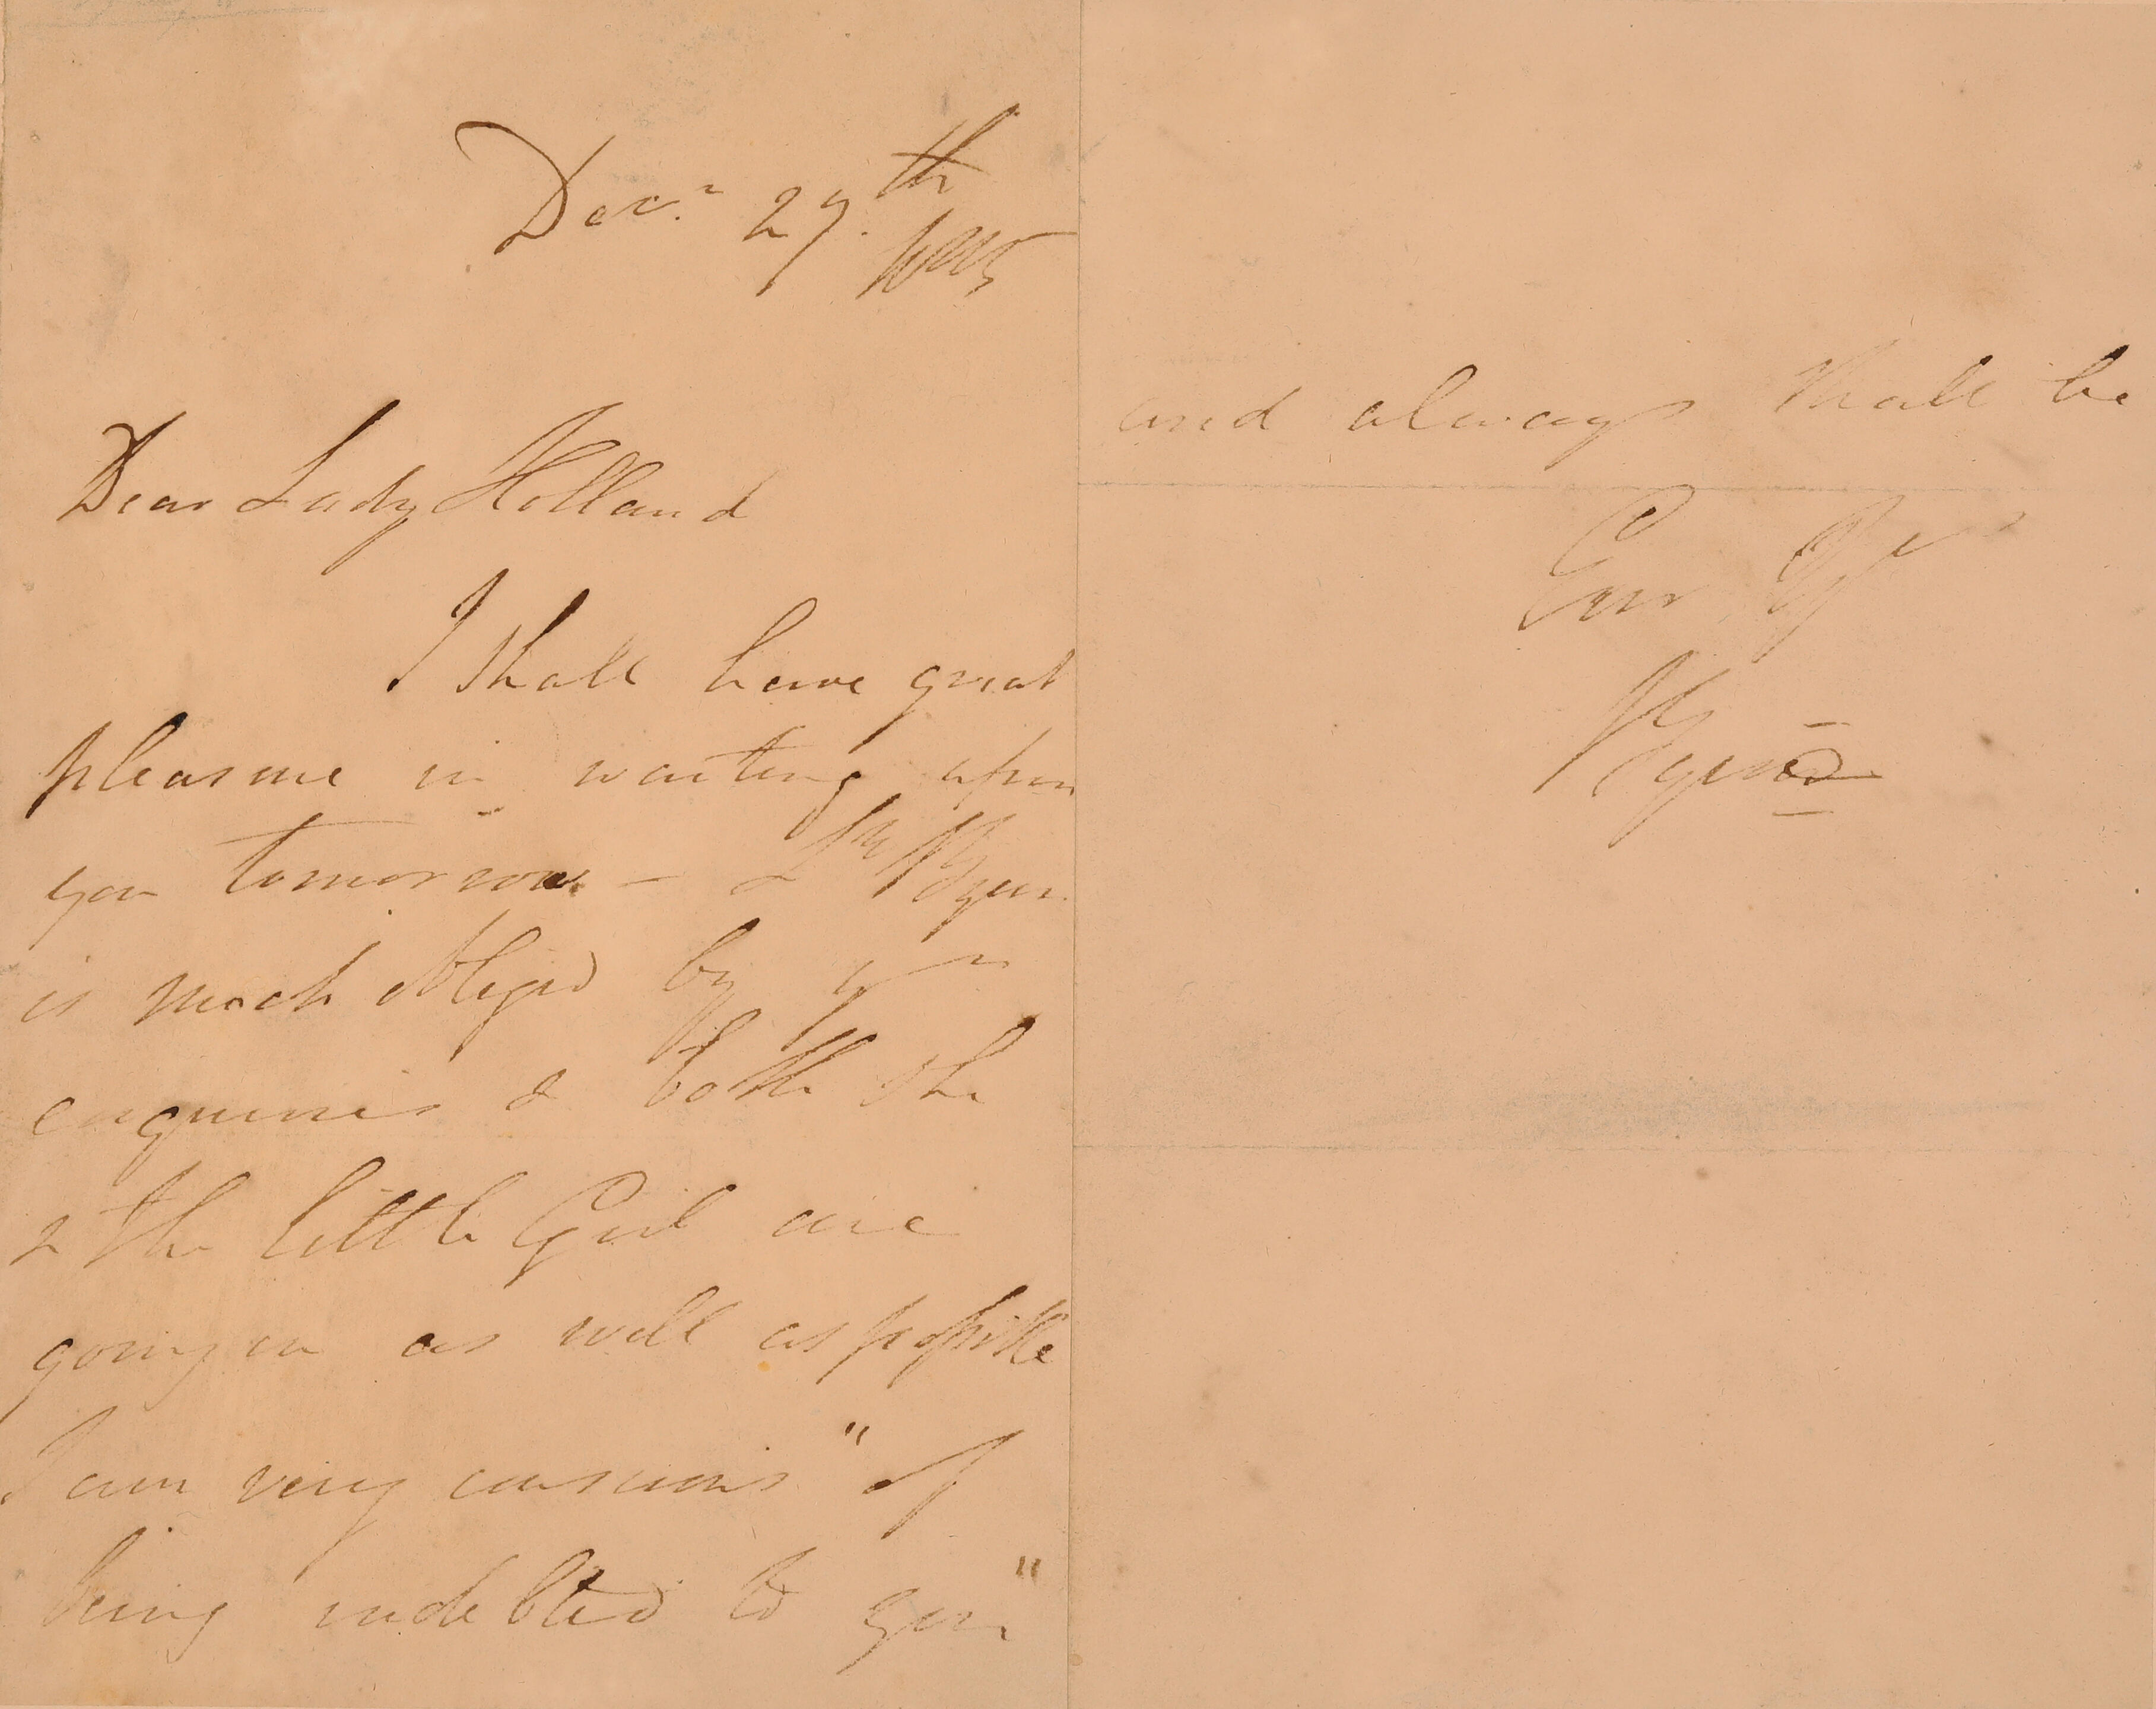 Decr. 29th
1815
Dear Lady Holland
I shall have great
pleasure in waiting upon
you tomorrow — Ly Byron
is much obliged by yr
enquiries & both she
& the little Girl are
going on as well as possible
I am very conscious "of
being indebted to you"
and always shall be
Byron